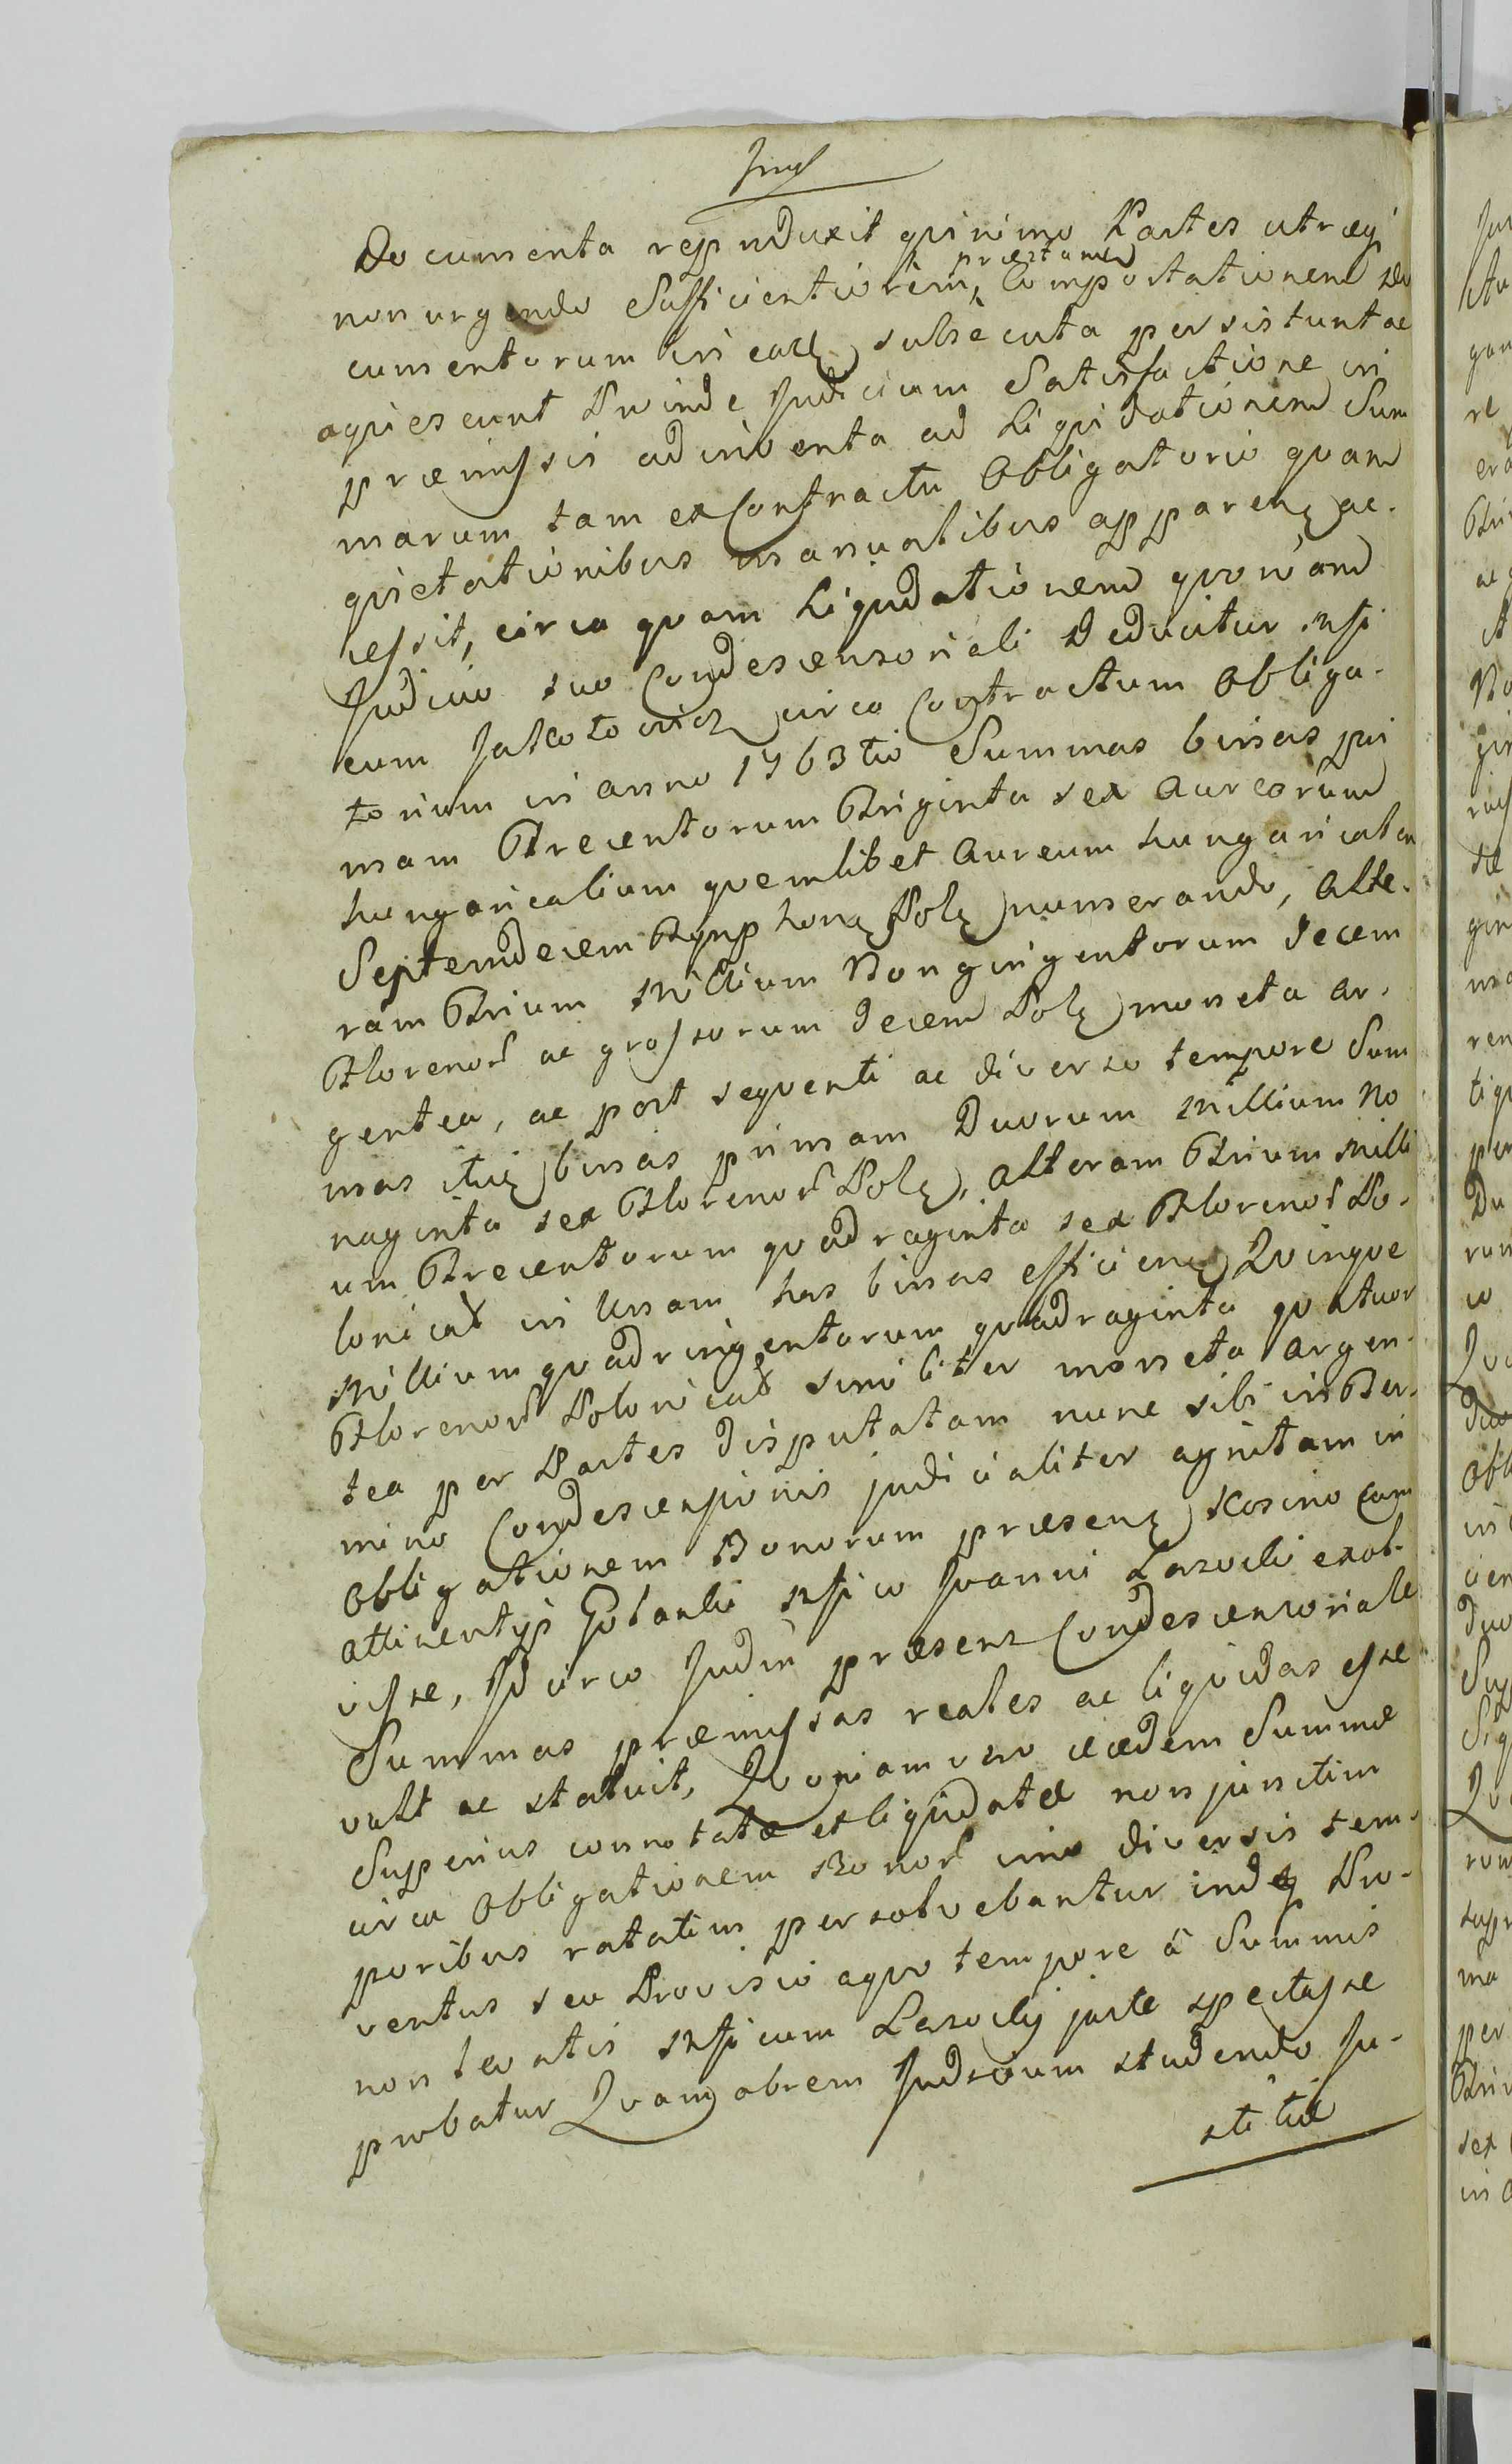 Documenta reproduxit quinimo Partes utræq
non urgendo Sufficientiorem præstam Comportationem Do
cumentorum in ea subsecuta persistunt ac
aquiescunt Proinde Judicium Satisfactione in
præmissis adinventa ad Liquidationem Sum
marum tam ex Contractu Obligatorio quam
quietationibus manualibus apparen ac-
cessit, circa quam Liquidationem quoniam
Judicio suo Condescensoriali Deducitur
eum circa Contractum Obliga-
torium in anno 1763tio Summas binas pri
mam Trecentorum Triginta sex Aureorum
hungaricalium quemlibet Aureum hungaricalem
Septemdecem Tynphon Pol numerando, Alte-
ram Trium Millium Nongingentorum decem
Florenor ac grossorum decem Pol moneta ar-
gentea, ac post sequenti ac diverso tempore Sum
mas binas primam Duorum Millium No
naginta sex Florenor Pol, alteram Trium Milli
um Trecentorum quadraginta sex Florenor Po-
lonical in Unam has binas efficien Quinque
Millium quadringentorum quadraginta quatuor
Florenor Polonical similiter moneta argen-
tea per Partes disputatam nunc sibi in Ter-
mino Condescensionis judicialiter agnitam in
Obligationem Bonorum præsen Kosino cum
attinentys Gotanki Joanni Lasocki exol-
visse, Idcirco Judm præsens Condescensoriale
Summas præmissas reales ac liquidas esse
vult ac statuit, Quoniam vero eædem Summæ
Superius connotatæ et liquidatæ non junctim
circa Obligationem Bonor imo diversis tem-
poribus ratatim persolvebantur indeq Pro-
ventus seu Provisio a quo tempore á Summis
non levatis Mficum Lasocky juste spectasse
probatur Quamobrem Judicium studendo Ju-
stitiæ